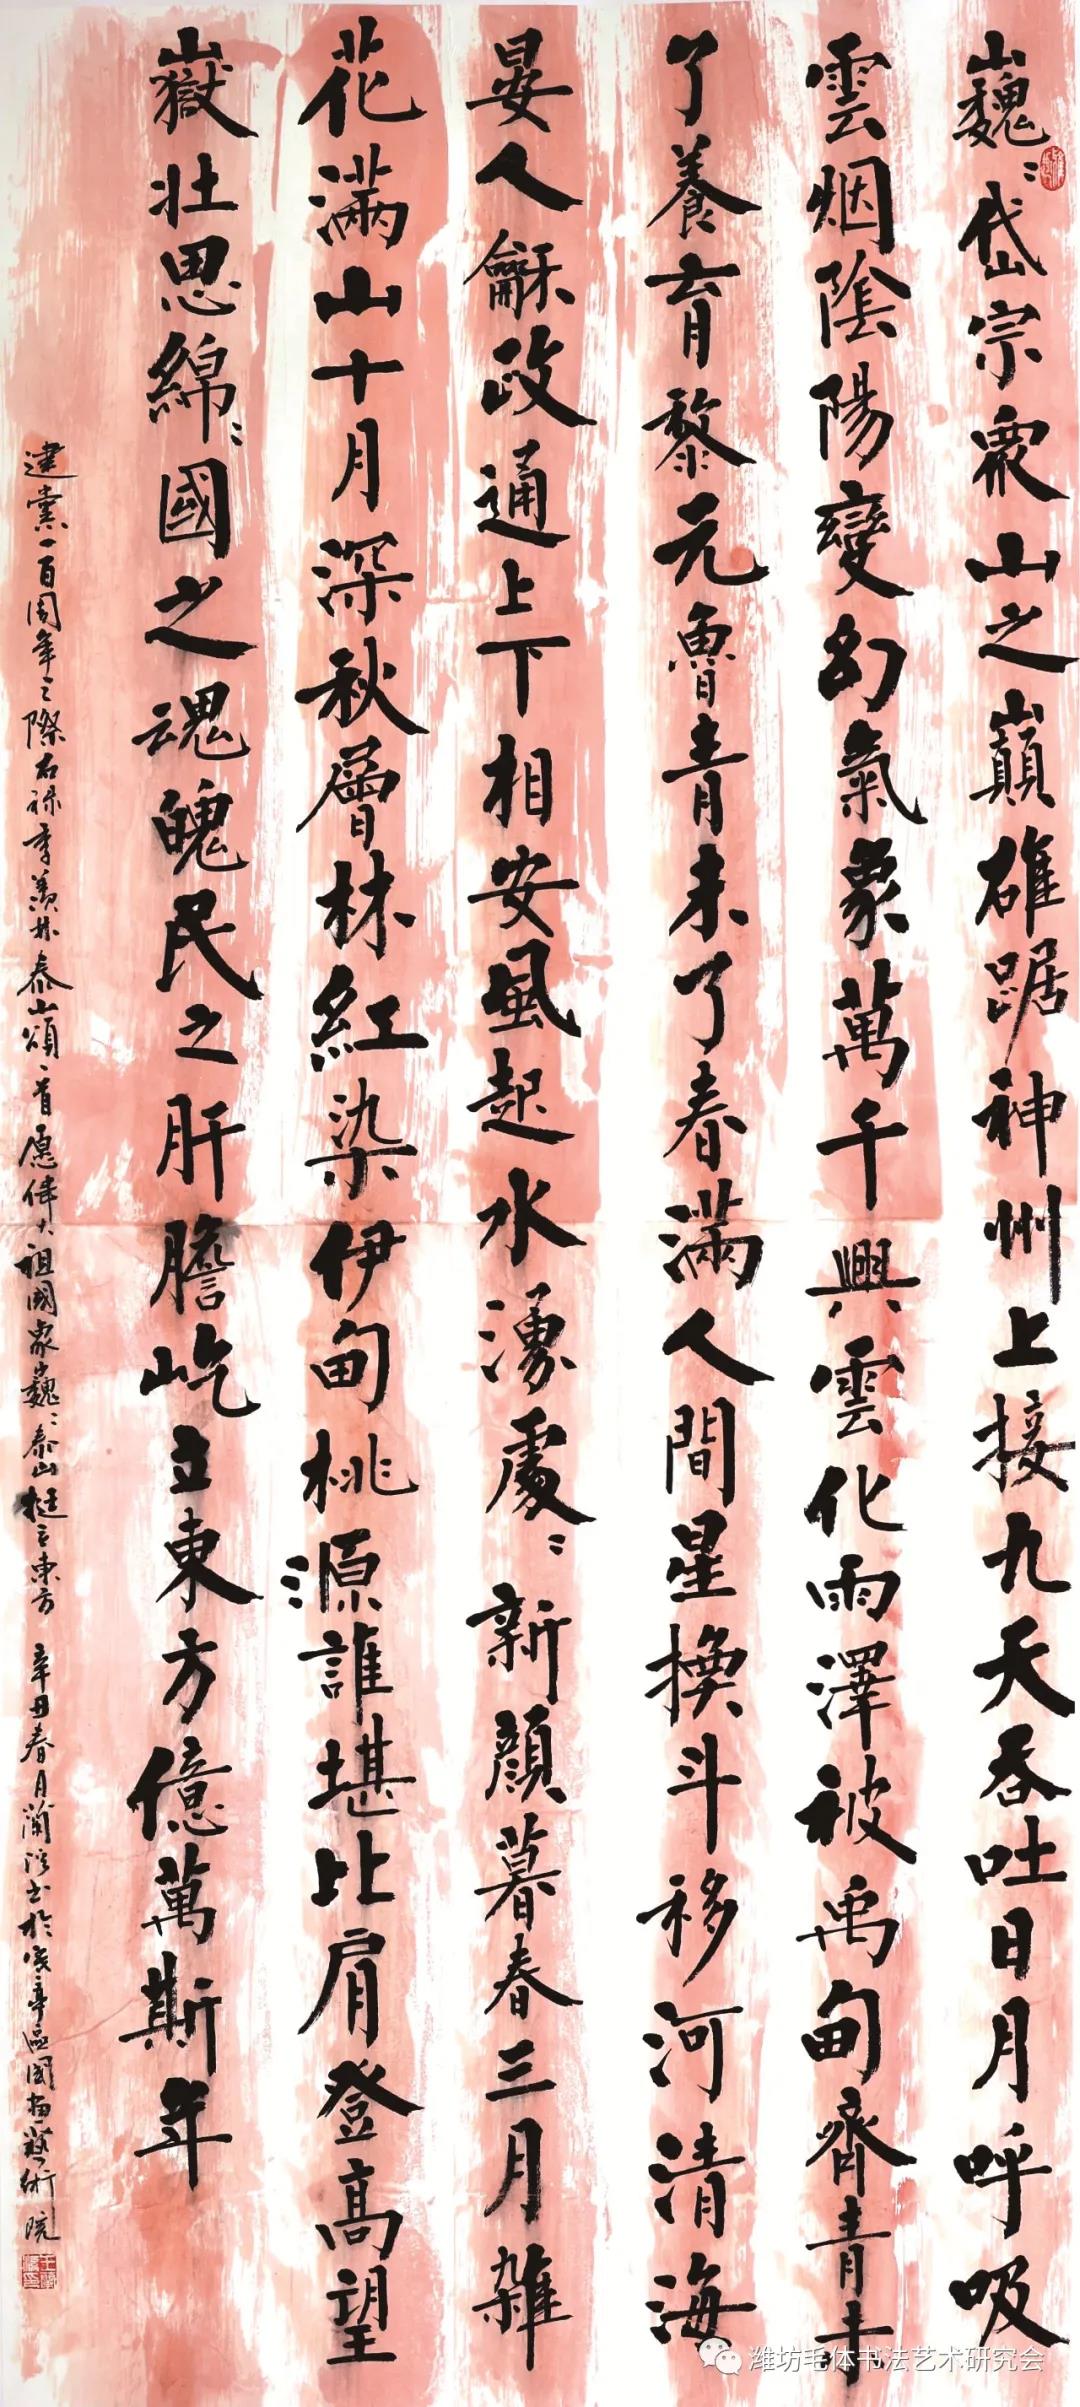 巍〻岱宗衆山之巔雄踞神州上接九天吞吐日月呼吸
雲烟陰陽變幻氣象萬千興雲化雨澤被禹甸齊青未
了養育黎元魯青未了春滿人間星換斗移河清海
晏人龢政通上下相安風起水湧處〻新顏暮春三月雜
花滿山十月深秋層林紅染伊甸桃源誰堪比肩登高望
嶽壯思綿〻國之魂魄民之肝膽屹立東方億萬斯年
建黨一百周年之際右录季羡林泰山頌一首愿偉大祖國象巍〻泰山挺立東方 辛丑春月蘭 书於 亭區國 藝術院
潍坊毛体书法艺术研究会